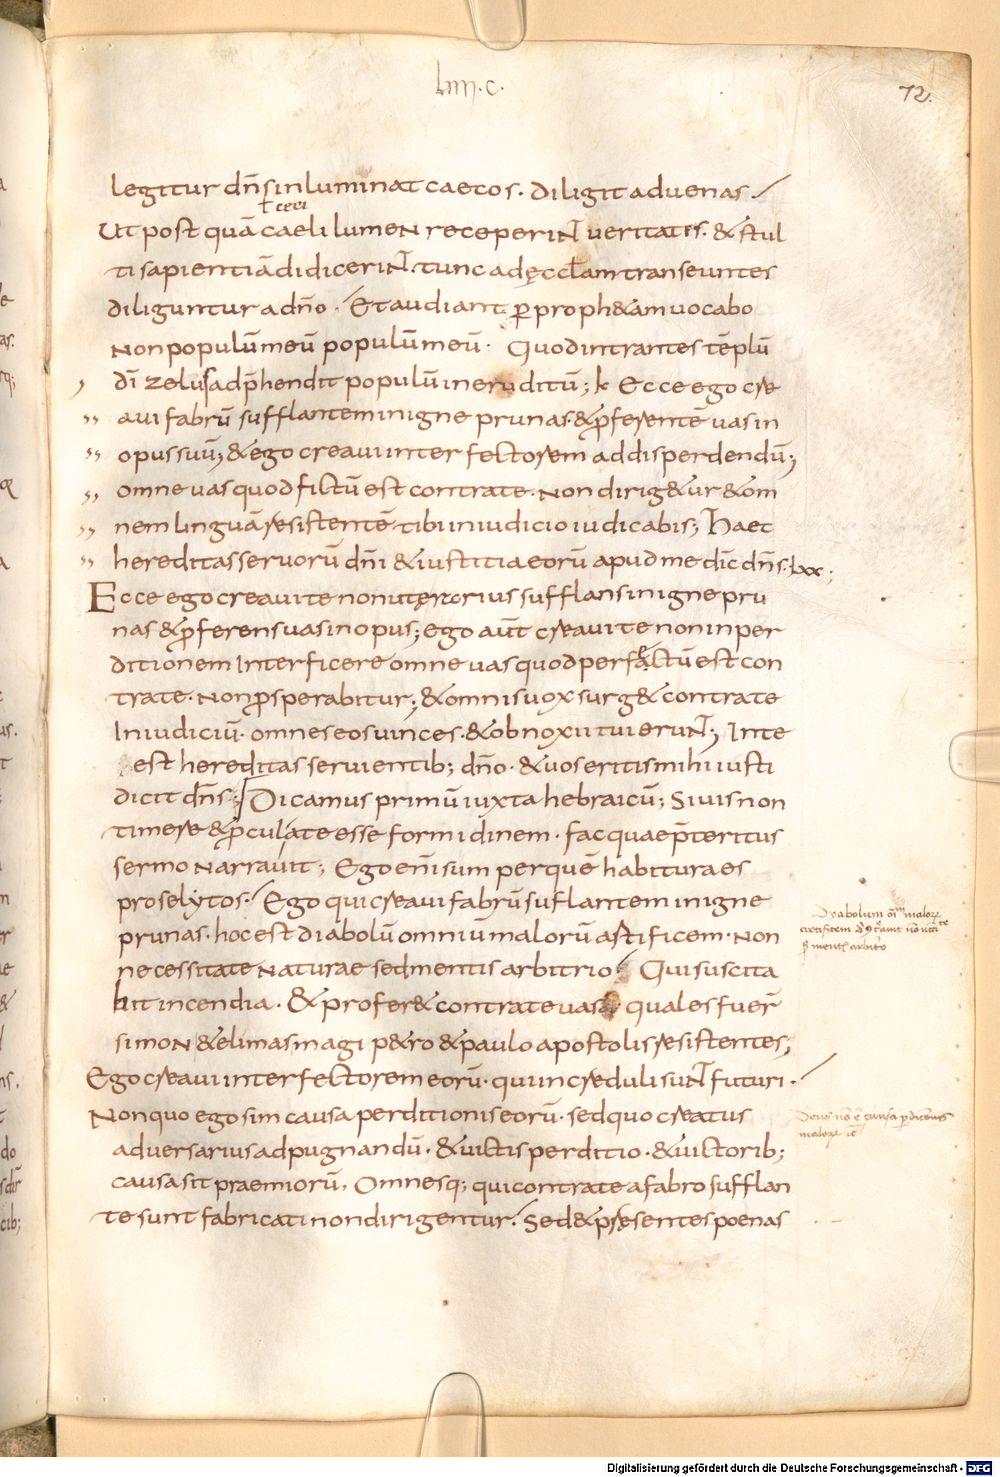 liiii. c.
72.
legitur dn̄s inluminat caecos. diligit aduenas.
ł ceci
Ut post quā caeli lumen receperint ueritatis. & stul
ti sapientiā didicerint. tunc ad ęccłam transeuntes
diliguntur a dn̄o. Et audiant per proph&am uocabo
non populū meū populū meū. Quod intrantes tēplū
dī zelus adp̄hendit populū ineruditū; Ecce ego cre
aui fabrū sufflantem in igne prunas & proferentē uas in
opus suū; & ego creaui interfectorem ad disperdendū;
omne uas quod fictū est contra te. non dirig&ur & om
nem linguā resistentē tibi in iudicio iudicabis; Haec
hereditas seruorū dn̄i & iustitia eorū apud me dic̄ dn̄s. lxx;
Ecce ego creaui te non ut ęrarius sufflans in igne pru
nas & proferens uas in opus; ego aūt creaui te non in per
ditionem interficere omne uas quod perfactū est con
tra te. non prosperabitur; & omnis uox surg& contra te
in iudiciū. omnes eos uinces. & obnoxii tui erunt; In te
est hereditas seruientib; dn̄o. & uos eritis mihi iusti
dicit dn̄s; Dicamus primū iuxta hebraicū; Si uis non
timere & procul a te esse formidinem. fac quae p̄teritus
sermo narrauit; Ego enī sum per quē habitura es
proselytos. Ego qui creaui fabrū suflantem in igne
prunas. hoc est diabolū omniū malorū artificem. non
necessitate naturae sed mentis arbitrio. Qui suscita
bit incendia. & profer& contra te uasa. quales fuer̄
simon & elimas magi p&ro & paulo apostolis resistentes;
Ego creaui interfectorem eorū. qui increduli sunt futuri.
Non quo ego sim causa perditionis eorū. sed quo creatus
aduersarius ad pugnandū. & uictis perditio. & uictorib;
causa sit praemiorū. Omnesq; qui contra te a fabro sufflan
te sunt fabricati non dirigentur. Sed & p̄sentes poenas
Digitalisierung gefördert durch die Deutsche Forschungsgemeinschaft - DFG